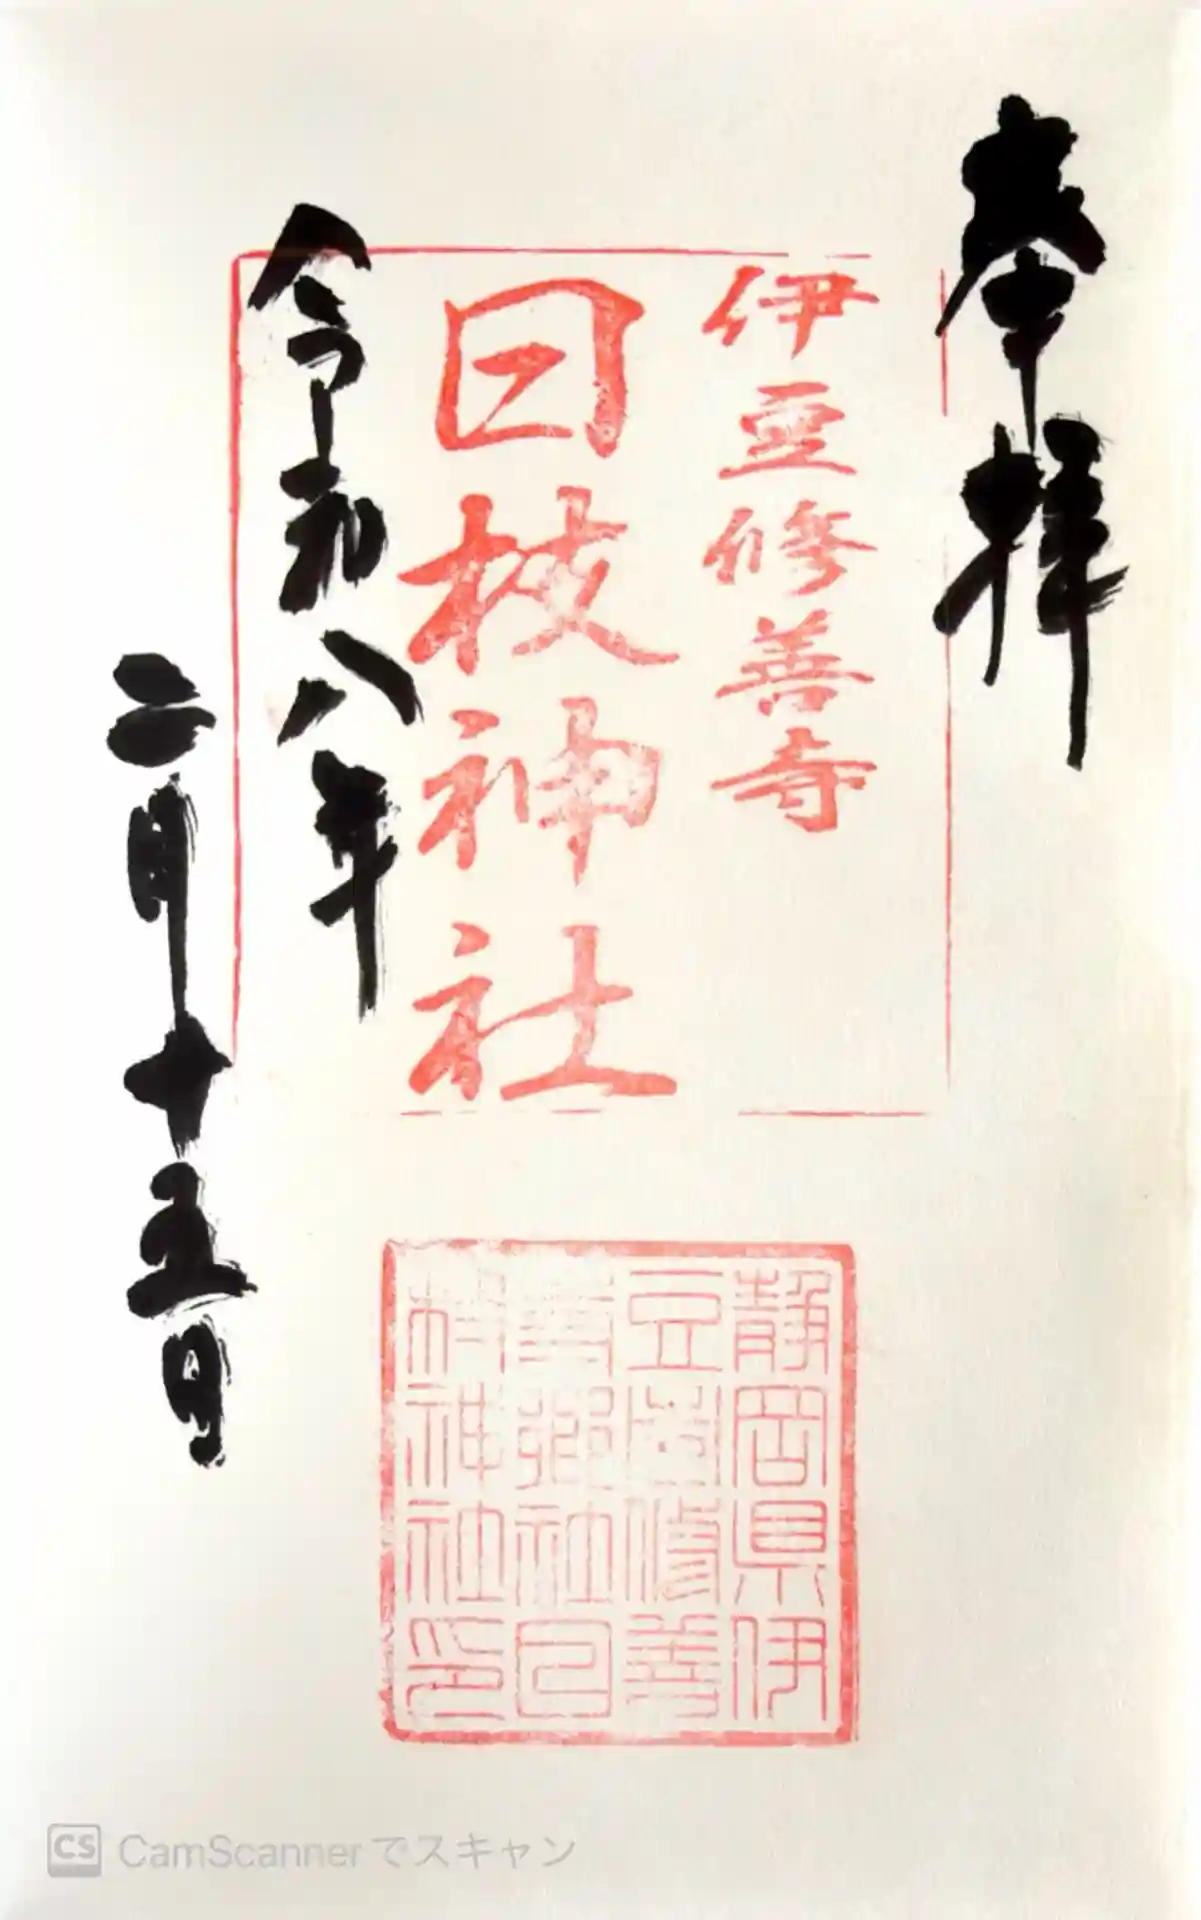 奉拝
伊豆修善寺
日枝神社
令和八年
二月十五日
静岡県伊
豆國修善
郷社日
枝神社印
CS CamScannerでスキャン